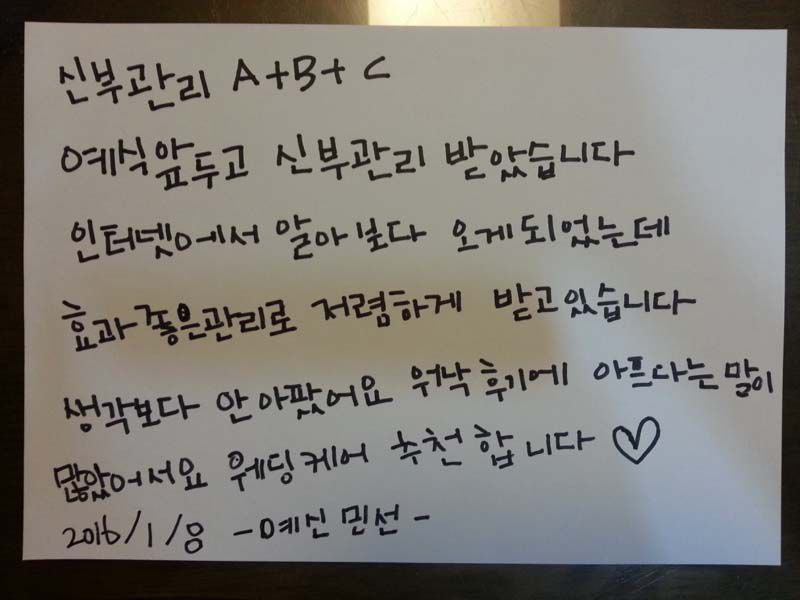 신부관리 A+B+C
예식앞두고 신부관리 받았습니다
인터넷에서 알아보다 오게되었는데
효과좋은관리로 저렴하게 받고있습니다
생각보다 안아팠어요 워낙 후기에 아프다는말이
많았어서요 웨딩케어 추천합니다 ♡
2016/1/8 -예신 민선-